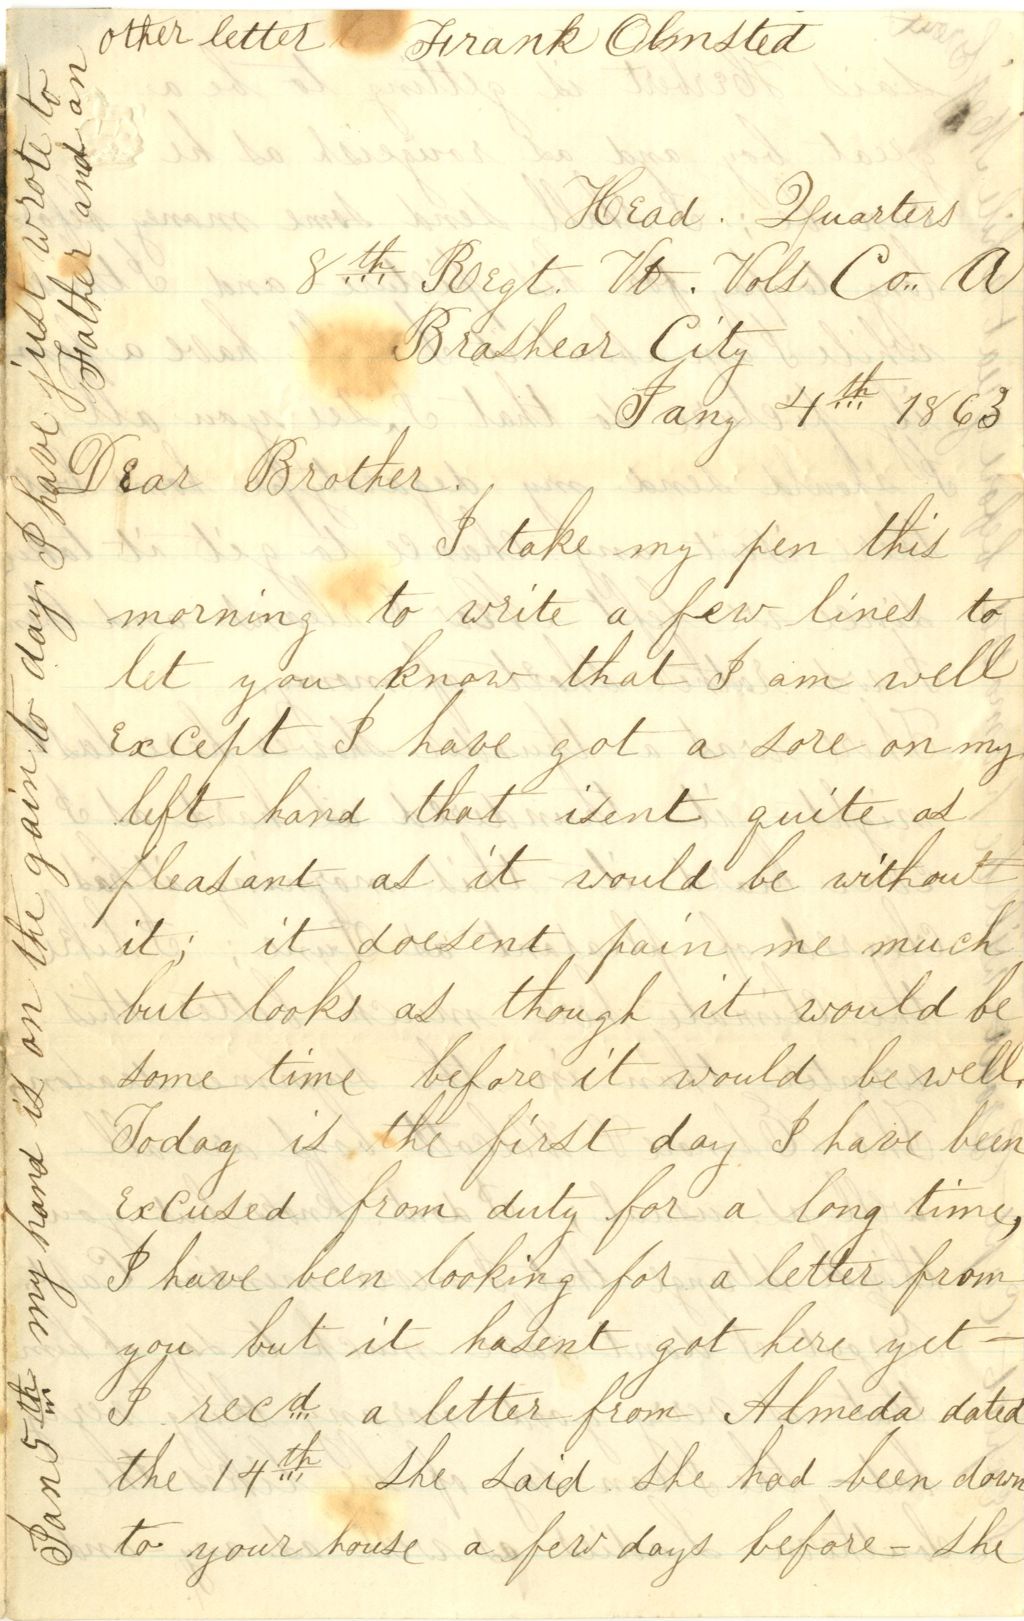 other letter Frank Olmsted
Head. Quarters
8th Regt. Vt. Vols Co.. A
Brashear City
Jany 4th 1863
Dear Brother.
I take my pen this
morning to write a few lines to
let you know that I am well
Except I have got a sore on my
left hand that isent quite as
pleasant as it would be without
it; it doesent pain me much
but looks as though it would be
some time before it would be well.
Today is the first day I have been
Excused from duty for a long time,
I have been looking for a letter from
you but it hasent got here yet –
I recd a letter from Almeda dated
the 14th she said she had been down
to your house a few days before = she
Jan 5th my hand is on the gain to day. I have just wrote to
Father and an